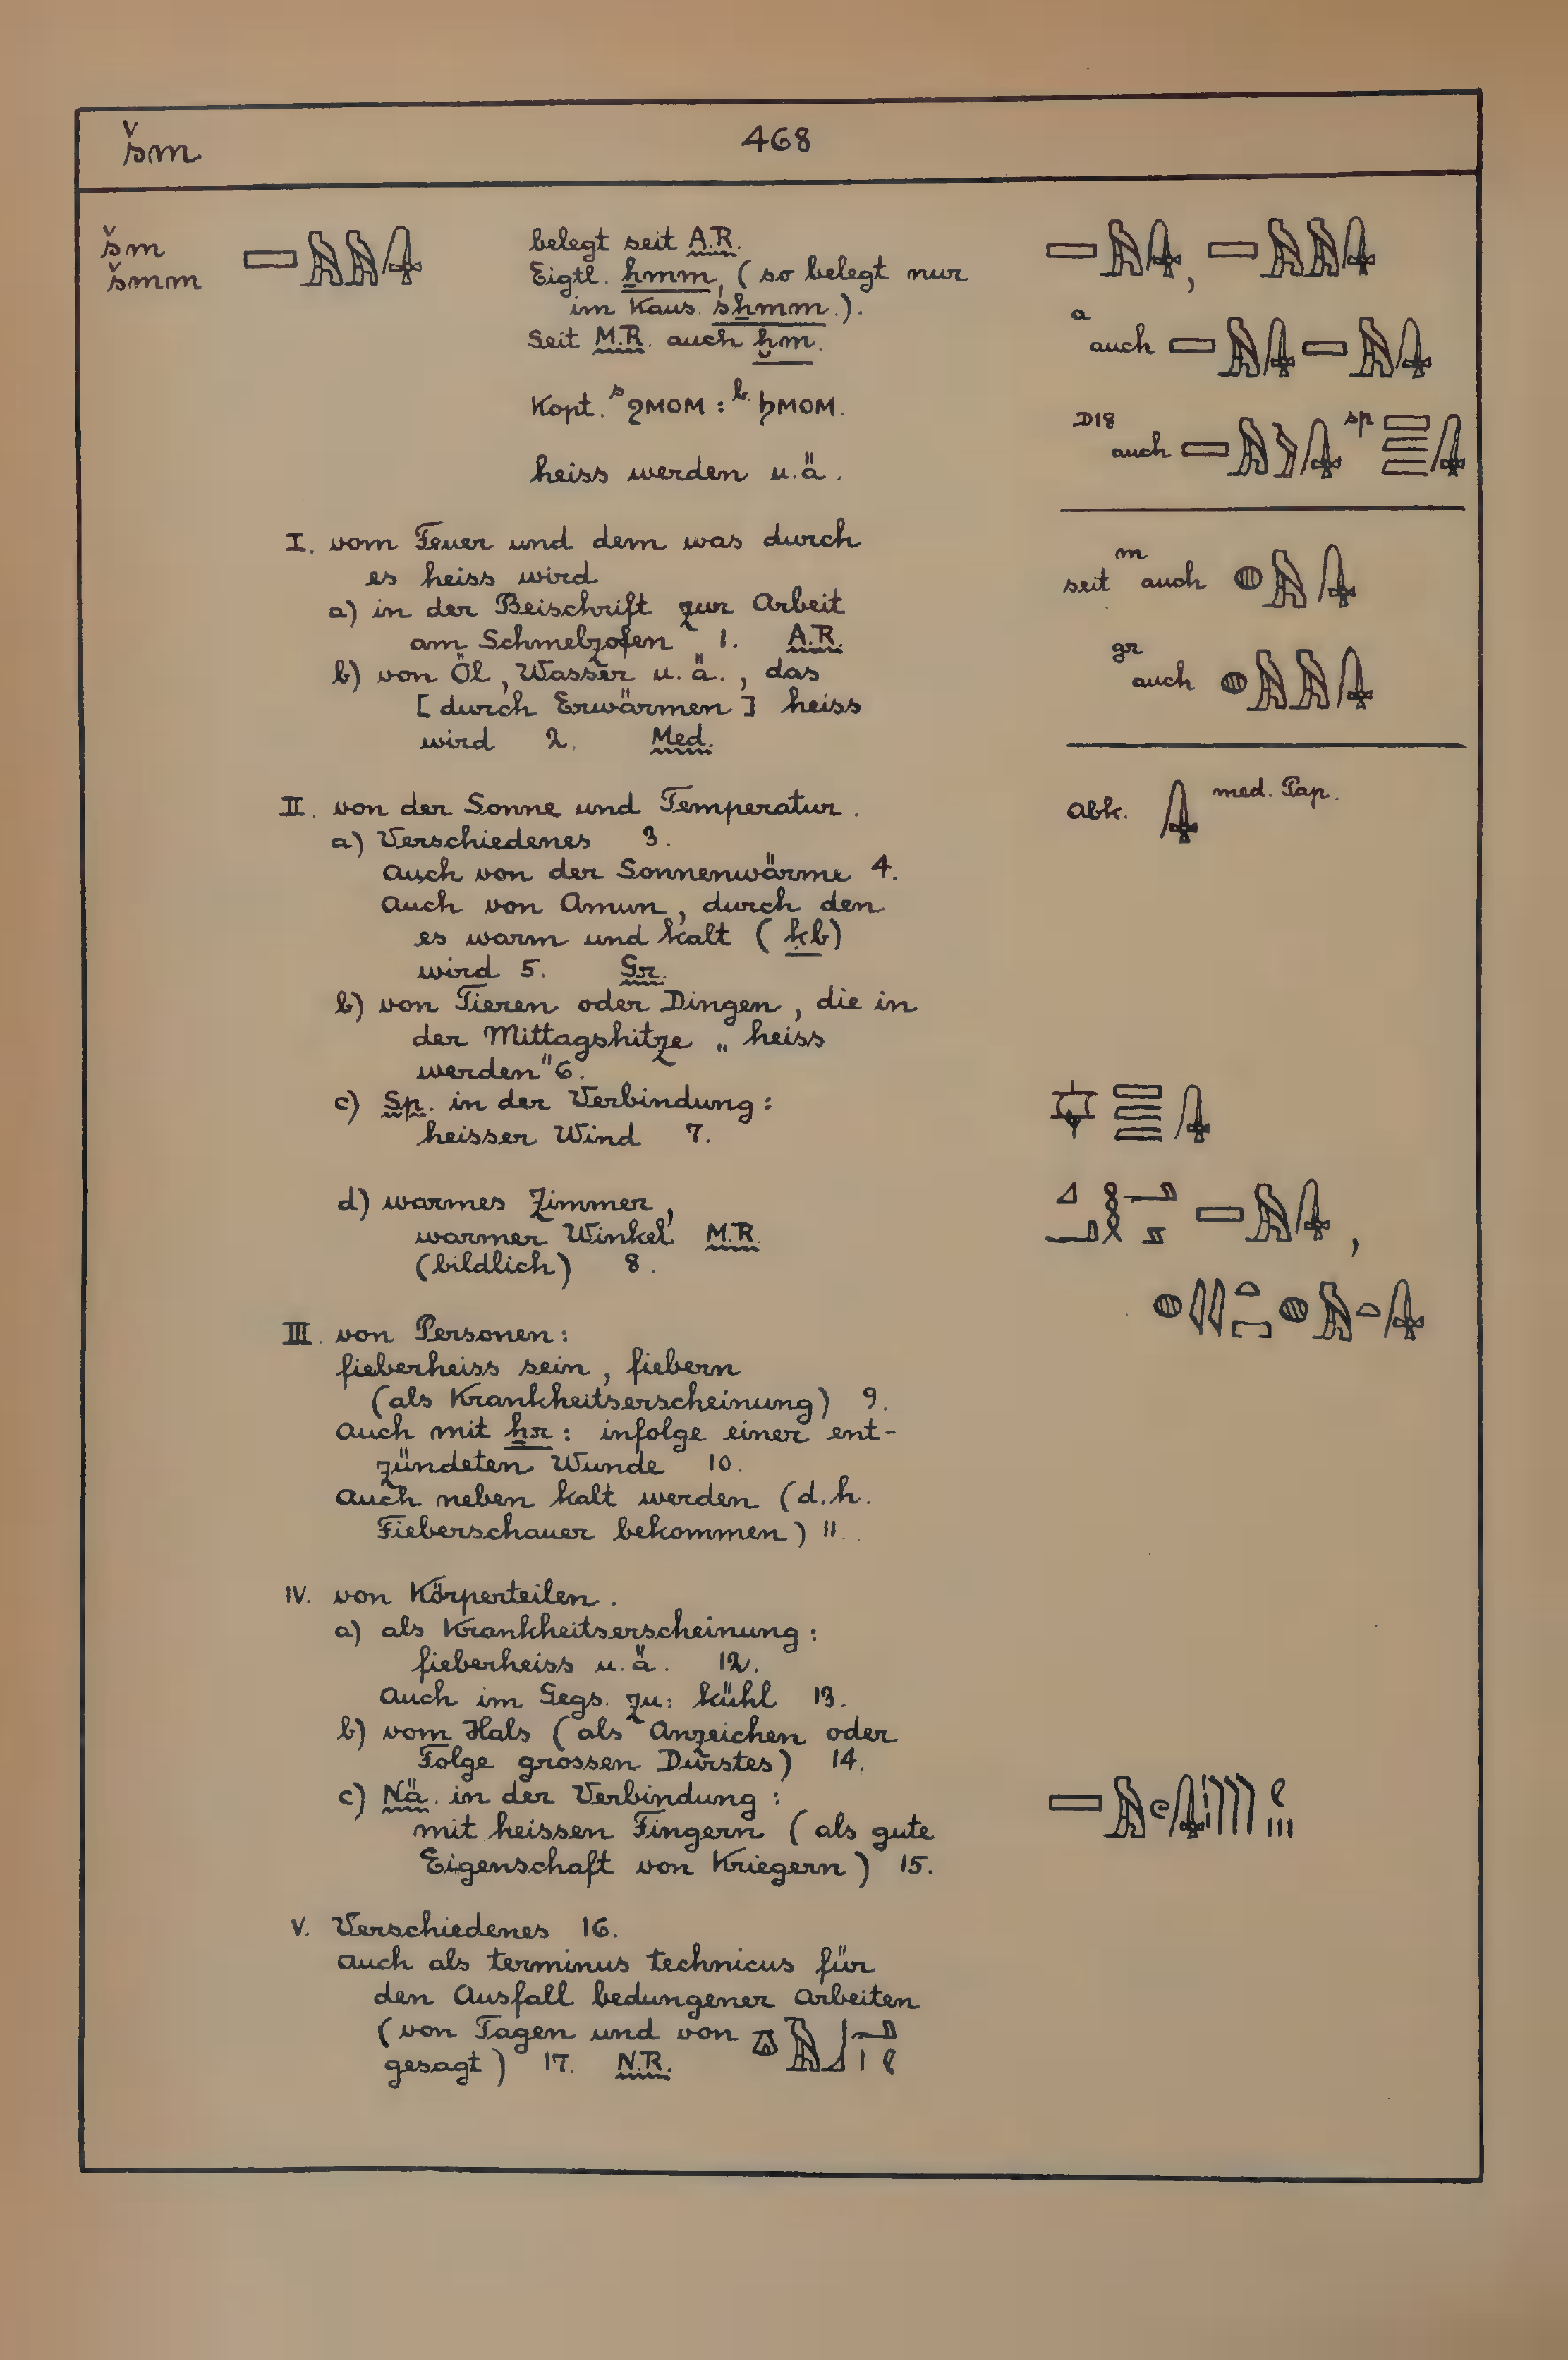 šm
468
šm
šmm
belegt seit A.R.
Eigtl. ẖmm, (so belegt nur
im Kaus. sẖmm.).
Seit M.R. auch ḫm.
Kopt. s ϩⲙⲟⲙ : b. ϧⲙⲟⲙ.
heiss werden u.ä.
I. vom Feuer und dem was durch
es heiss wird
a) in der Beischrift zur Arbeit
am Schmelzofen 1. A.R.
b) von Öl, Wasser u.ä., das
[durch Erwärmen] heiss
wird 2. Med.
II. von der Sonne und Temperatur.
a) Verschiedenes 3.
Auch von der Sonnenwärme 4.
Auch von Amun, durch den
es warm und kalt (ḳb)
wird 5. Gr.
b) von Tieren oder Dingen, die in
der Mittagshitze „heiss
werden" 6.
c) Sp. in der Verbindung:
heisser Wind 7.
d) warmes Zimmer,
warmer Winkel M.R.
(bildlich) 8.
III. von Personen:
fieberheiss sein, fiebern
(als Krankheitserscheinung) 9.
Auch mit ẖr: infolge einer ent-
zündeten Wunde 10.
Auch neben kalt werden (d.h.
Fieberschauer bekommen) 11.
IV. von Körperteilen.
a) als Krankheitserscheinung:
fieberheiss u.ä. 12.
Auch im Gegs. zu: kühl 13.
b) vom Hals (als Anzeichen oder
Folge grossen Durstes) 14.
c) Nä. in der Verbindung:
mit heissen Fingern (als gute
Eigenschaft von Kriegern) 15.
V. Verschiedenes 16.
Auch als terminus technicus für
den Ausfall bedungener Arbeiten
(von Tagen und von
gesagt) 17. N.R.
a
auch
D18
auch
sp
seit m auch
gr
auch
Abk. med. Pap.